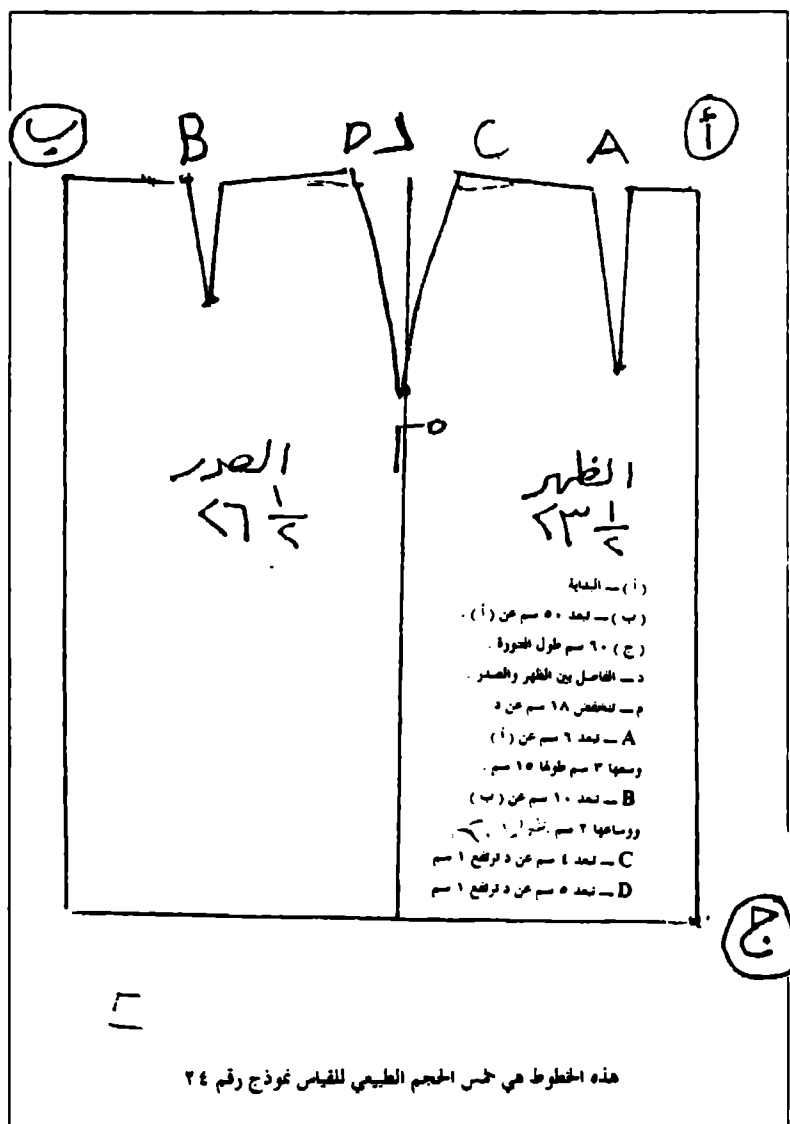 ب B D د C A أ
م
الصدر
٢٦ ١/٢
الظهر
٢٣ ١/٢
( أ ) — البداية
( ب ) — تبعد ٥٠ سم عن ( أ ) .
( ج ) ٦٠ سم طول التنورة .
د — الفاصل بين الظهر والصدر .
م — تنخفض ١٨ سم عن د
A — تبعد ٦ سم عن ( أ )
وسعها ٣ سم طولها ١٥ سم .
B — تبعد ١٠ سم عن ( ب )
ووساعها ٢ سم
C — تبعد ٤ سم عن د ترتفع ١ سم
D — تبعد ٥ سم عن د ترتفع ١ سم
ج
هذه الخطوط هي خمس الحجم الطبيعي للقياس نموذج رقم ٢٤